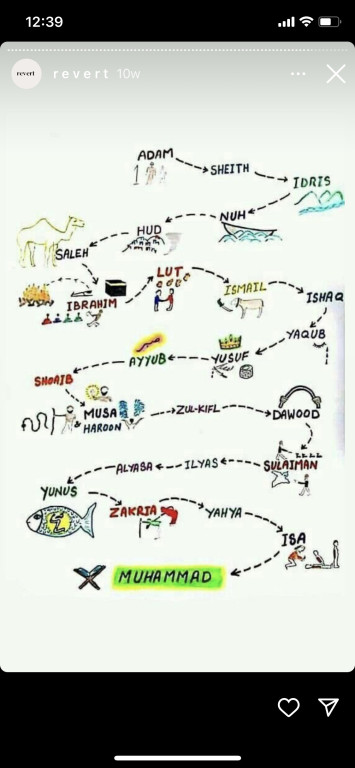 12:39
revert
revert 10w
ADAM
SHEITH
IDRIS
NUH
HUD
SALEH
LUT
IBRAHIM
ISMAIL
ISHAQ
YAQUB
YUSUF
AYYUB
SHOAIB
MUSA
HAROON
ZUL-KIFL
DAWOOD
SULAIMAN
ILYAS
ALYASA
YUNUS
ZAKRIA
YAHYA
ISA
MUHAMMAD